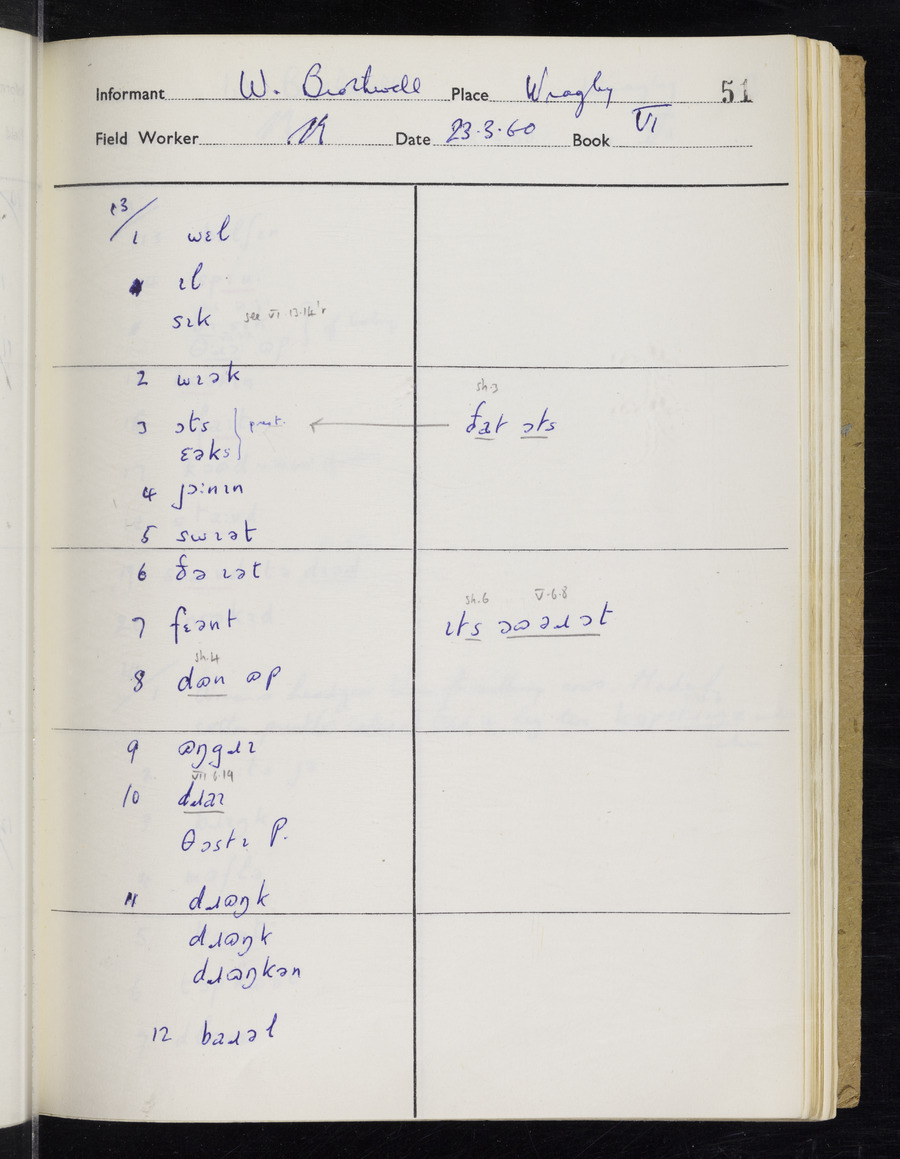 Informant W. Brothwell Place Wragby 51
Field Worker Date 23.3.60 Book VI
13/
1 wɛl
ɪl
sɪk see VI 13.14'r
2 wɪək
sh.3
3 ɔts } pret. ← ðat ɔts
ɛəks
4 ȷɔ:nɪn
5 swɪət
6 ðə ɪət
sh.6 V.6.8
7 fɛənt ɪts ɔʊəɹɔt
sh.4
8 dʊn ʊp
9 ʊŋgɹɪ
VII.6.19
10 dɹaɪ
θɔstɪ P.
11 dɹʊŋk
dɹʊŋk
dɹʊŋkən
12 baɹəl